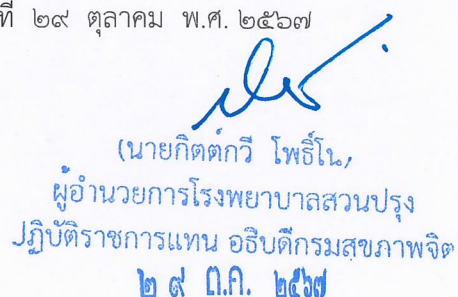 ที่ ๒๙ ตุลาคม พ.ศ. ๒๕๖๗
(นายกิตต์กวี โพธิ์โน)
ผู้อำนวยการโรงพยาบาลสวนปรุง
ปฏิบัติราชการแทน อธิบดีกรมสุขภาพจิต
๒๙ ต.ค. ๒๕๖๗